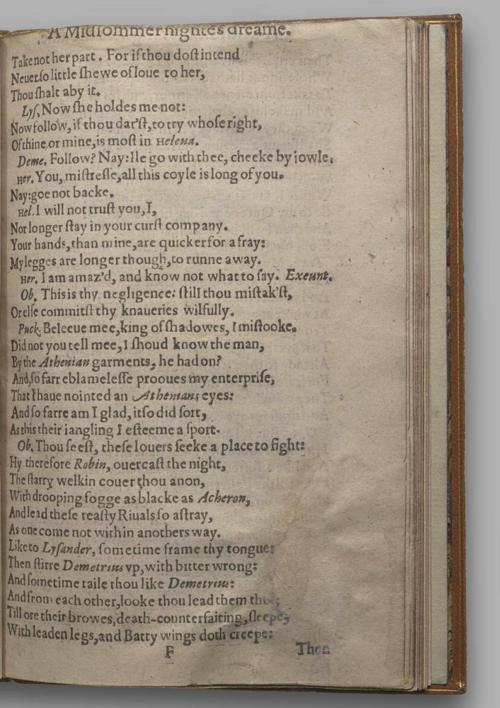 A Midsommer nightes dreame.
Take not her part. For if thou dost intend
Neuer so little shewe of loue to her,
Thou shalt aby it.
Lys. Now she holdes me not:
Now follow, if thou dar'st, to try whose right,
Of thine or mine, is most in Helena.
Deme. Follow? Nay: Ile go with thee, cheeke by iowle.
Her. You, mistresse, all this coyle is long of you.
Nay: goe not backe.
Hel. I will not trust you, I,
Nor longer stay in your curst company.
Your hands, than mine, are quicker for a fray:
My legges are longer though, to runne away.
Her. I am amaz'd, and know not what to say. Exeunt.
Ob. This is thy negligence: still thou mistak'st,
Or else commitst thy knaueries wilfully.
Puck. Beleeue mee, king of shadowes, I mistooke.
Did not you tell mee, I shoud know the man,
By the Athenian garments, he had on?
And, so farre blamelesse prooues my enterprise,
That I haue nointed an Athenians eyes:
And so farre am I glad, it so did sort,
As this their iangling I esteeme a sport.
Ob. Thou seest, these louers seeke a place to fight:
Hy therefore Robin, ouercast the night,
The starry welkin couer thou anon,
With drooping fogge as blacke as Acheron,
And lead these teasty Riuals so astray,
As one come not within anothers way.
Like to Lysander, sometime frame thy tongue:
Then stirre Demetrius vp, with bitter wrong:
And sometime raile thou like Demetrius:
And from each other, looke thou lead them
Till ore their browes, death-counterfaiting, sleepe,
With leaden legs, and Batty wings doth creepe:
F Then